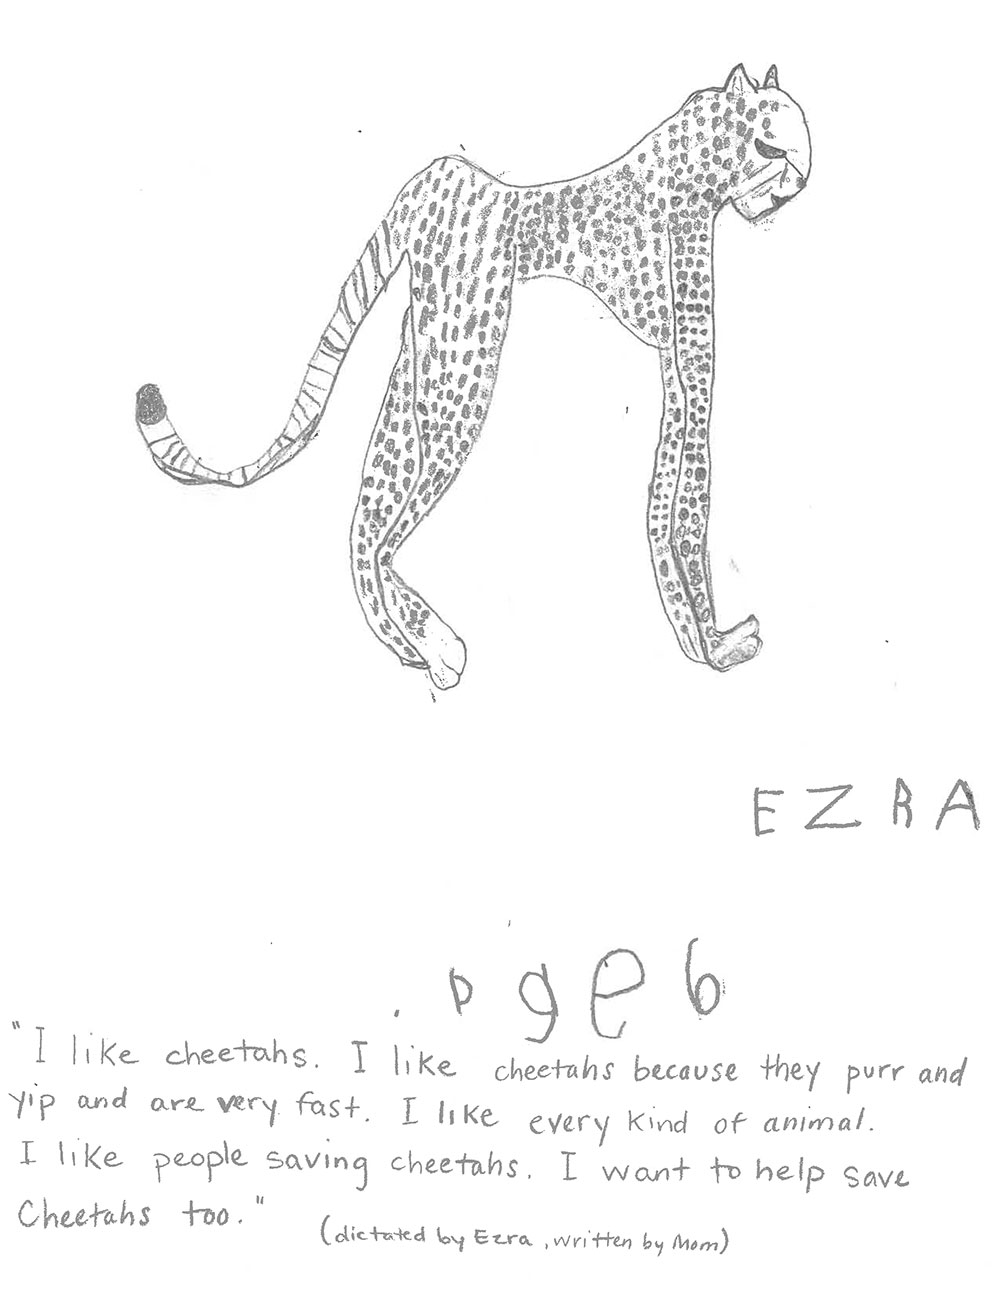 EZRA
. D g e 6
"I like cheetahs. I like cheetahs because they purr and
yip and are very fast. I like every kind of animal.
I like people saving cheetahs. I want to help save
Cheetahs too."
(dictated by Ezra, written by Mom)